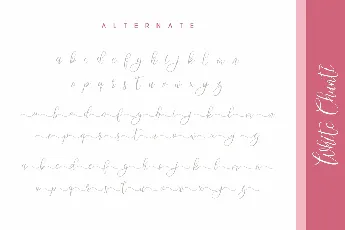 ALTERNATE
a b c d e f g h i j k l m n
o p q r s t u v w x y z
a b c d e f g h i j k l m n o
p q r s t u v w x y z
a b c d e f g h i j k l m n
o p q r s t u v w x y z
White Chunti